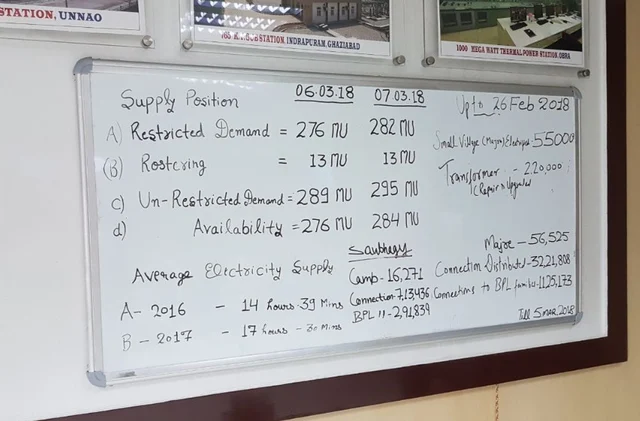 STATION, UNNAO
765 K.V. SUBSTATION, INDRAPURAM, GHAZIABAD
1000 MEGA WATT THERMAL POWER STATION, OBRA
Supply Position 06.03.18 07.03.18
A) Restricted Demand = 276 MU 282 MU
(B) Rostering = 13 MU 13 MU
c) Un-Restricted Demand = 289 MU 295 MU
d) Availability = 276 MU 284 MU
Average Electricity Supply
A - 2016 - 14 hours - 39 Mins
B - 2017 - 17 hours - 30 Mins
Saubhagy
Camb - 16,271
Connection - 7,13,436
BPL 11 - 2,91,839
Upto 26 Feb 2018
Small Village (Majra) Electriped - 55000
Transformer - 2,20,000
(Repair & Upgraded
Majre - 56,525
Connection Distributed - 32,21,808
Connections to BPL family - 1125,173
Till 5 MAR, 2018